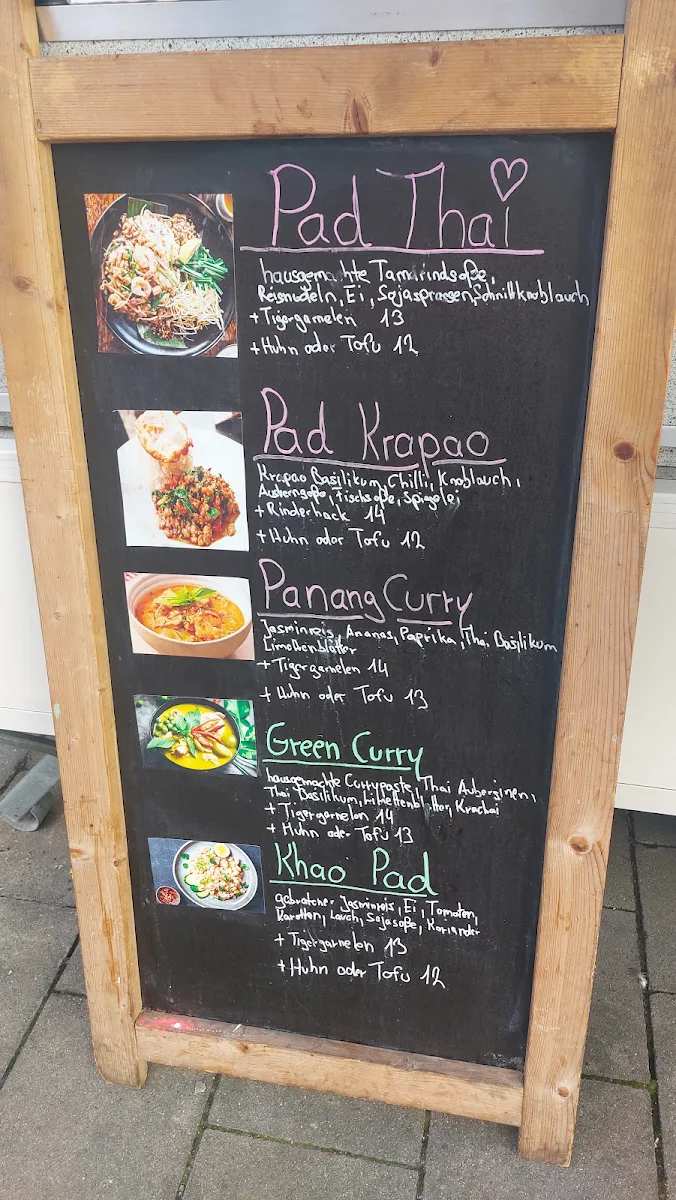 Pad Thai
hausgemachte Tamarindsoße,
Reisnudeln, Ei, Sojasprossen, Schnittknoblauch
+ Tigergarnelen 13
+ Huhn oder Tofu 12
Pad Krapao
Krapao Basilikum, Chilli, Knoblauch,
Austernsoße, Fischsoße, Spiegelei
+ Rinderhack 14
+ Huhn oder Tofu 12
Panang Curry
Jasminreis, Ananas, Paprika, Thai Basilikum
Limettenblätter
+ Tigergarnelen 14
+ Huhn oder Tofu 13
Green Curry
hausgemachte Currypaste, Thai Auberginen,
Thai Basilikum, Limettenblätter, Krachai
+ Tigergarnelen 14
+ Huhn oder Tofu 13
Khao Pad
gebratener Jasminreis, Ei, Tomaten,
Karotten, Lauch, Sojasoße, Koriander
+ Tigergarnelen 13
+ Huhn oder Tofu 12